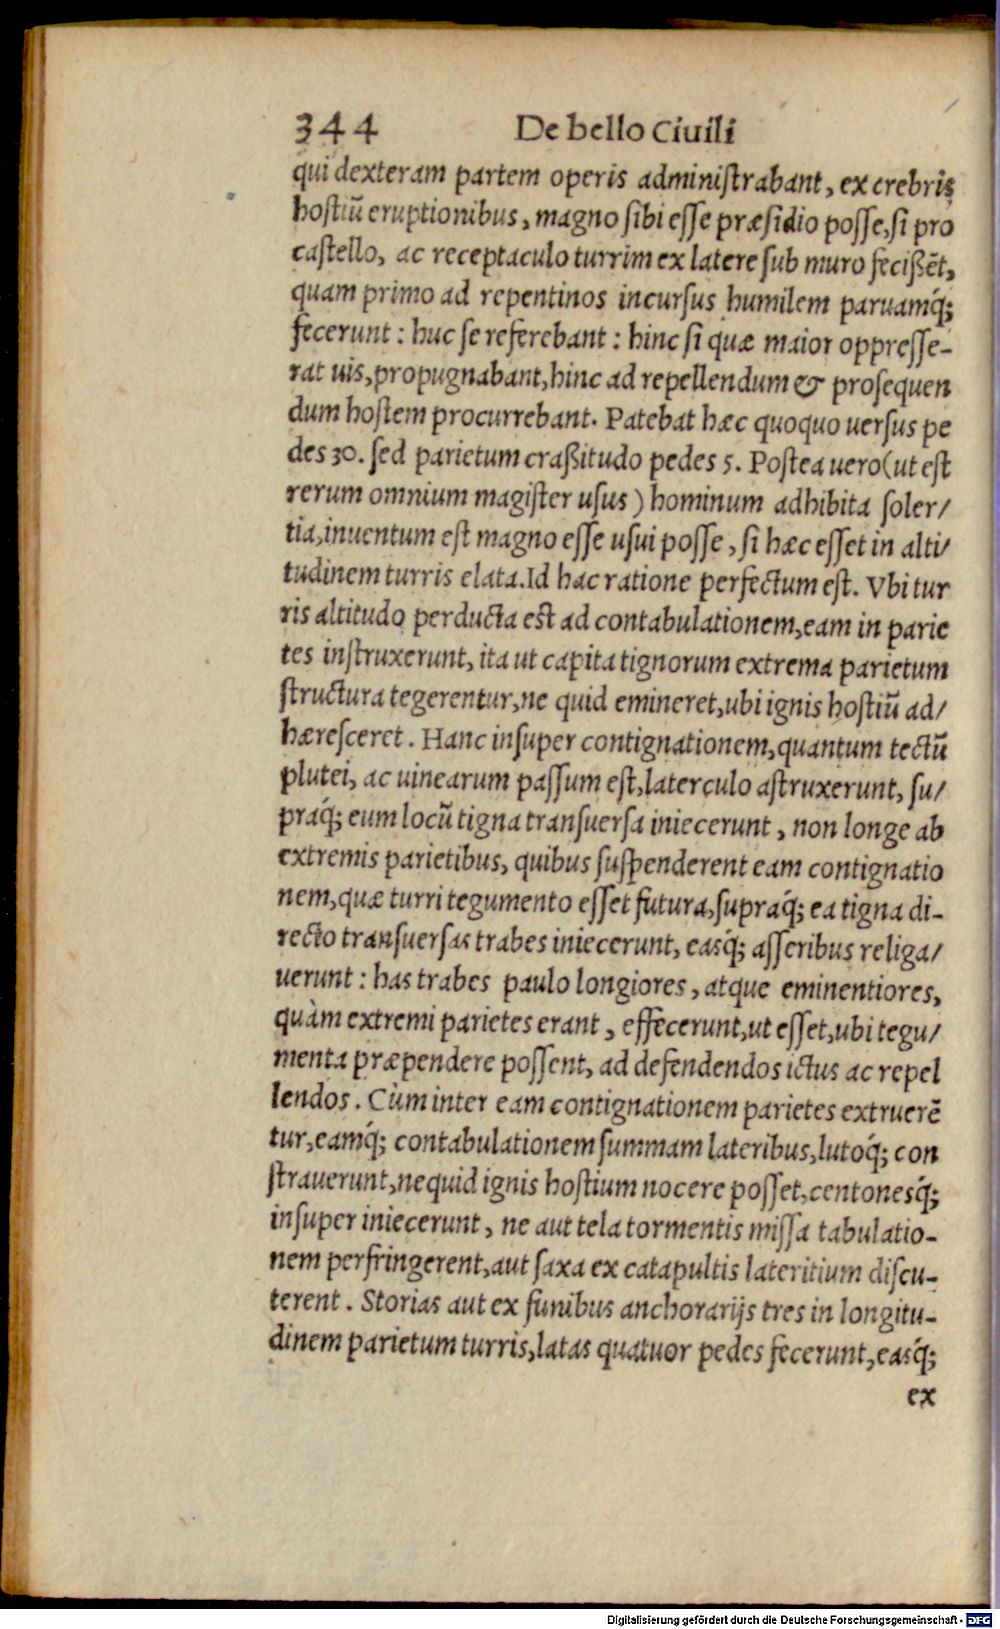 344 De bello Ciuili
qui dexteram partem operis administrabant, ex crebris
hostiũ eruptionibus, magno sibi esse præsidio posse, si pro
castello, ac receptaculo turrim ex latere sub muro fecißẽt,
quam primo ad repentinos incursus humilem paruamq́;
fecerunt: huc se referebant: hinc si quæ maior oppresse-
rat uis, propugnabant, hinc ad repellendum & prosequen
dum hostem procurrebant. Patebat hæc quoquo uersus pe
des 30. sed parietum craßitudo pedes 5. Postea uero (ut est
rerum omnium magister usus) hominum adhibita soler/
tia, inuentum est magno esse usui posse, si hæc esset in alti/
tudinem turris elata. Id hac ratione perfectum est. Vbi tur
ris altitudo perducta est ad contabulationem, eam in parie
tes instruxerunt, ita ut capita tignorum extrema parietum
structura tegerentur, ne quid emineret, ubi ignis hostiũ ad/
hæresceret. Hanc insuper contignationem, quantum tectũ
plutei, ac uinearum passum est, laterculo astruxerunt, su/
praq́; eum locũ tigna transuersa iniecerunt, non longe ab
extremis parietibus, quibus suspenderent eam contignatio
nem, quæ turri tegumento esset futura, supraq́; ea tigna di-
recto transuersas trabes iniecerunt, easq́; asseribus religa/
uerunt: has trabes paulo longiores, atque eminentiores,
quàm extremi parietes erant, effecerunt, ut esset, ubi tegu/
menta præpendere possent, ad defendendos ictus ac repel
lendos. Cùm inter eam contignationem parietes extruerẽ
tur, eamq́; contabulationem summam lateribus, lutoq́; con
strauerunt, nequid ignis hostium nocere posset, centonesq́;
insuper iniecerunt, ne aut tela tormentis missa tabulatio-
nem perfringerent, aut saxa ex catapultis lateritium discu-
terent. Storias aut ex funibus anchorarijs tres in longitu-
dinem parietum turris, latas quatuor pedes fecerunt, easq́;
ex
Digitalisierung gefördert durch die Deutsche Forschungsgemeinschaft - DFG